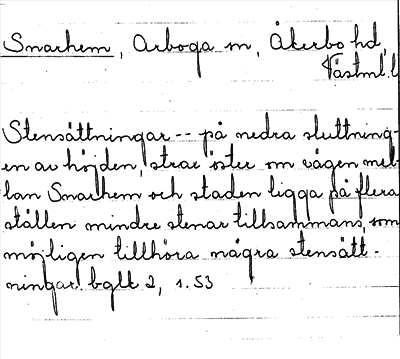 Snarhem, Arboga sn, Åkerbo hd,
Västml. l
Stensättningar -- på nedra sluttning-
en av höjden, strax öster om vägen mel-
lan Snarhem och staden ligga på flera
ställen mindre stenar tillsammans, som
möjligen tillhöra några stensätt-
ningar. bglk 2, 1.53